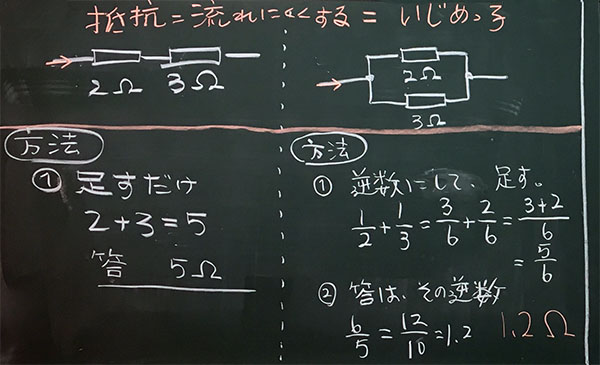 抵抗=流れにくくする=いじめっ子
2Ω 3Ω
2Ω
3Ω
方法
① 足すだけ
2+3=5
答 5Ω
方法
① 逆数にして、足す。
1/2+1/3=3/6+2/6=3+2/6
=5/6
② 答は、その逆数
6/5=12/10=1.2 1.2Ω